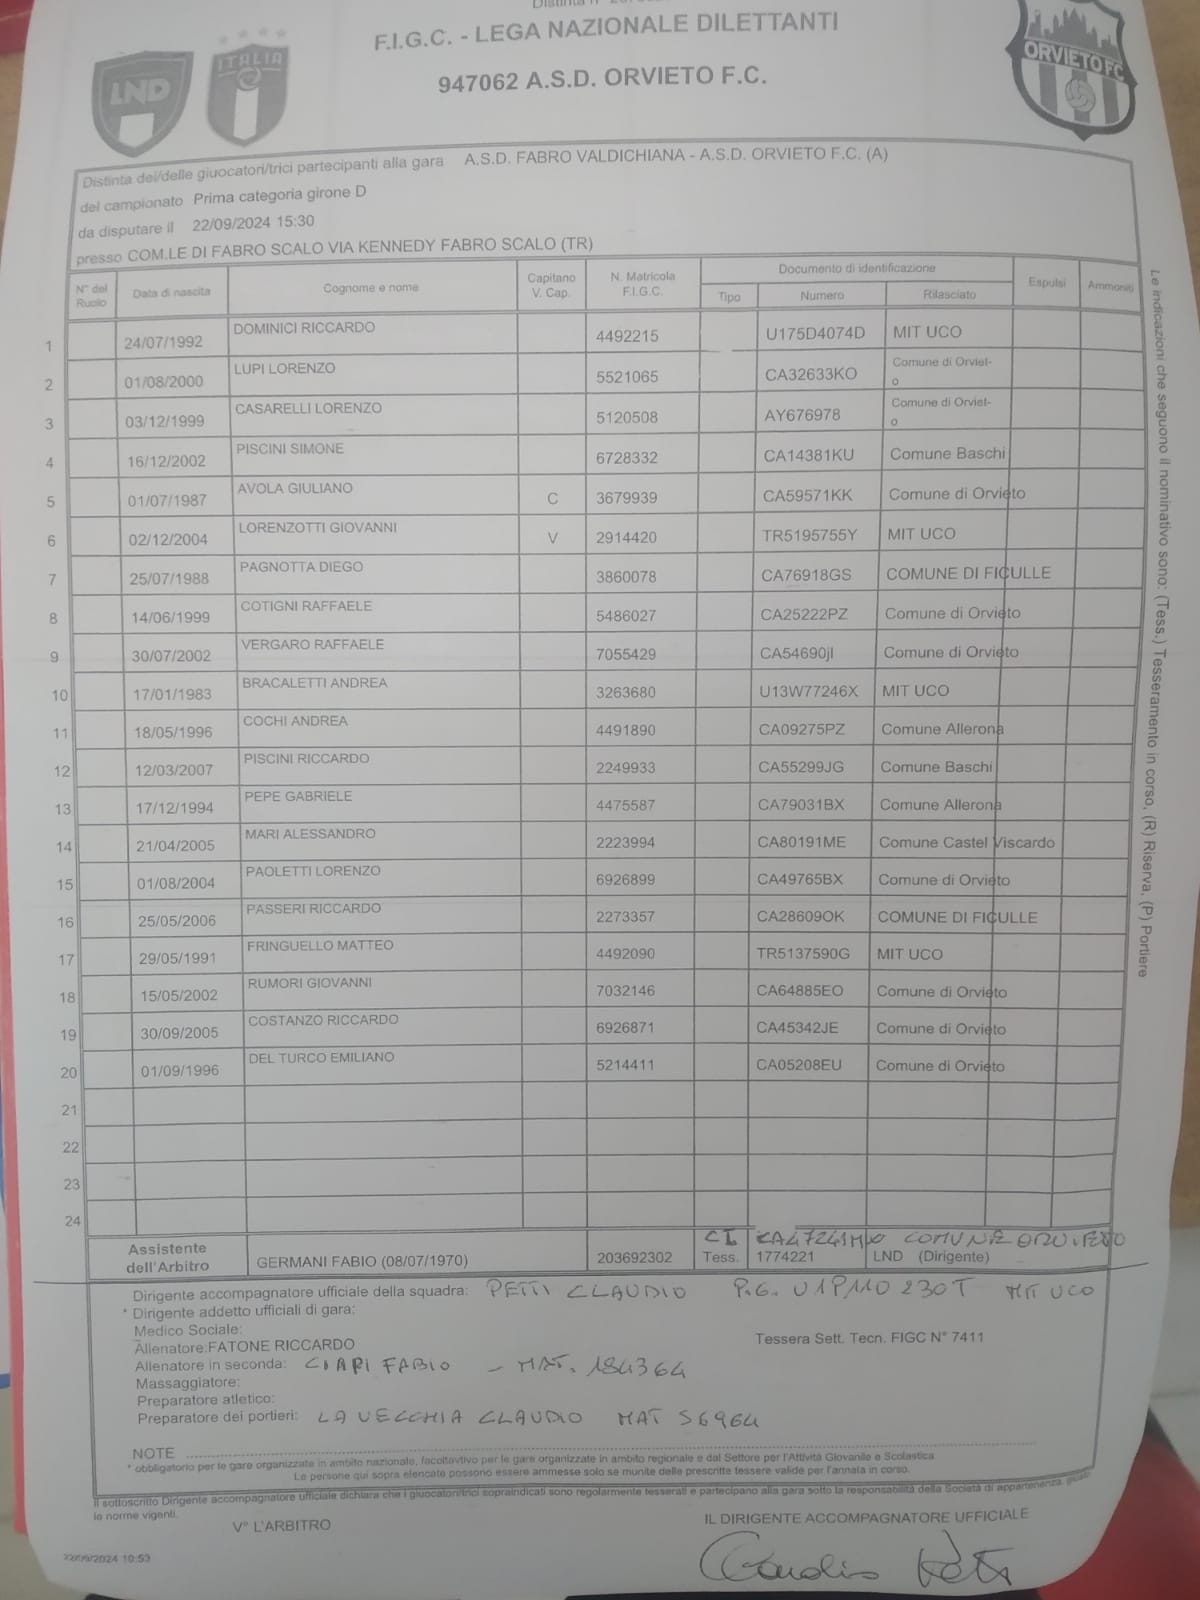 Distinta n°
F.I.G.C. - LEGA NAZIONALE DILETTANTI
947062 A.S.D. ORVIETO F.C.
LND
ITALIA
ORVIETO FC
Distinta dei/delle giuocatori/trici partecipanti alla gara A.S.D. FABRO VALDICHIANA - A.S.D. ORVIETO F.C. (A)
del campionato Prima categoria girone D
da disputare il 22/09/2024 15:30
presso COM.LE DI FABRO SCALO VIA KENNEDY FABRO SCALO (TR)
N° del Ruolo Data di nascita Cognome e nome Capitano V. Cap. N. Matricola F.I.G.C. Documento di identificazione Tipo Numero Rilasciato Espulsi Ammoniti
1 24/07/1992 DOMINICI RICCARDO 4492215 U175D4074D MIT UCO
2 01/08/2000 LUPI LORENZO 5521065 CA32633KO Comune di Orviet-
o
3 03/12/1999 CASARELLI LORENZO 5120508 AY676978 Comune di Orviet-
o
4 16/12/2002 PISCINI SIMONE 6728332 CA14381KU Comune Baschi
5 01/07/1987 AVOLA GIULIANO C 3679939 CA59571KK Comune di Orvieto
6 02/12/2004 LORENZOTTI GIOVANNI V 2914420 TR5195755Y MIT UCO
7 25/07/1988 PAGNOTTA DIEGO 3860078 CA76918GS COMUNE DI FICULLE
8 14/06/1999 COTIGNI RAFFAELE 5486027 CA25222PZ Comune di Orvieto
9 30/07/2002 VERGARO RAFFAELE 7055429 CA54690jI Comune di Orvieto
10 17/01/1983 BRACALETTI ANDREA 3263680 U13W77246X MIT UCO
11 18/05/1996 COCHI ANDREA 4491890 CA09275PZ Comune Allerona
12 12/03/2007 PISCINI RICCARDO 2249933 CA55299JG Comune Baschi
13 17/12/1994 PEPE GABRIELE 4475587 CA79031BX Comune Allerona
14 21/04/2005 MARI ALESSANDRO 2223994 CA80191ME Comune Castel Viscardo
15 01/08/2004 PAOLETTI LORENZO 6926899 CA49765BX Comune di Orvieto
16 25/05/2006 PASSERI RICCARDO 2273357 CA28609OK COMUNE DI FICULLE
17 29/05/1991 FRINGUELLO MATTEO 4492090 TR5137590G MIT UCO
18 15/05/2002 RUMORI GIOVANNI 7032146 CA64885EO Comune di Orvieto
19 30/09/2005 COSTANZO RICCARDO 6926871 CA45342JE Comune di Orvieto
20 01/09/1996 DEL TURCO EMILIANO 5214411 CA05208EU Comune di Orvieto
21
22
23
24
Le indicazioni che seguono il nominativo sono: (Tess.) Tesseramento in corso, (R) Riserva, (P) Portiere
CI COMUNE ORVIETO
Assistente dell'Arbitro GERMANI FABIO (08/07/1970) 203692302 Tess. 1774221 LND (Dirigente)
Dirigente accompagnatore ufficiale della squadra: PETTI CLAUDIO P.G. U1P110230T MIT UCO
* Dirigente addetto ufficiali di gara:
Medico Sociale:
Allenatore:FATONE RICCARDO Tessera Sett. Tecn. FIGC N° 7411
Allenatore in seconda: CIARI FABIO - MAT. 184364
Massaggiatore:
Preparatore atletico:
Preparatore dei portieri: LA VECCHIA CLAUDIO MAT 56964
NOTE
* obbligatorio per le gare organizzate in ambito nazionale, facoltavtivo per le gare organizzate in ambito regionale e dal Settore per l'Attività Giovanile e Scolastica
Le persone qui sopra elencate possono essere ammesse solo se munite delle prescritte tessere valide per l'annata in corso.
Il sottoscritto Dirigente accompagnatore ufficiale dichiara che i giuocatori/trici sopraindicati sono regolarmente tesserati e partecipano alla gara sotto la responsabilità della Società di appartenenza, giusto
le norme vigenti.
V° L'ARBITRO
IL DIRIGENTE ACCOMPAGNATORE UFFICIALE
22/09/2024 10:53
Claudio Petti